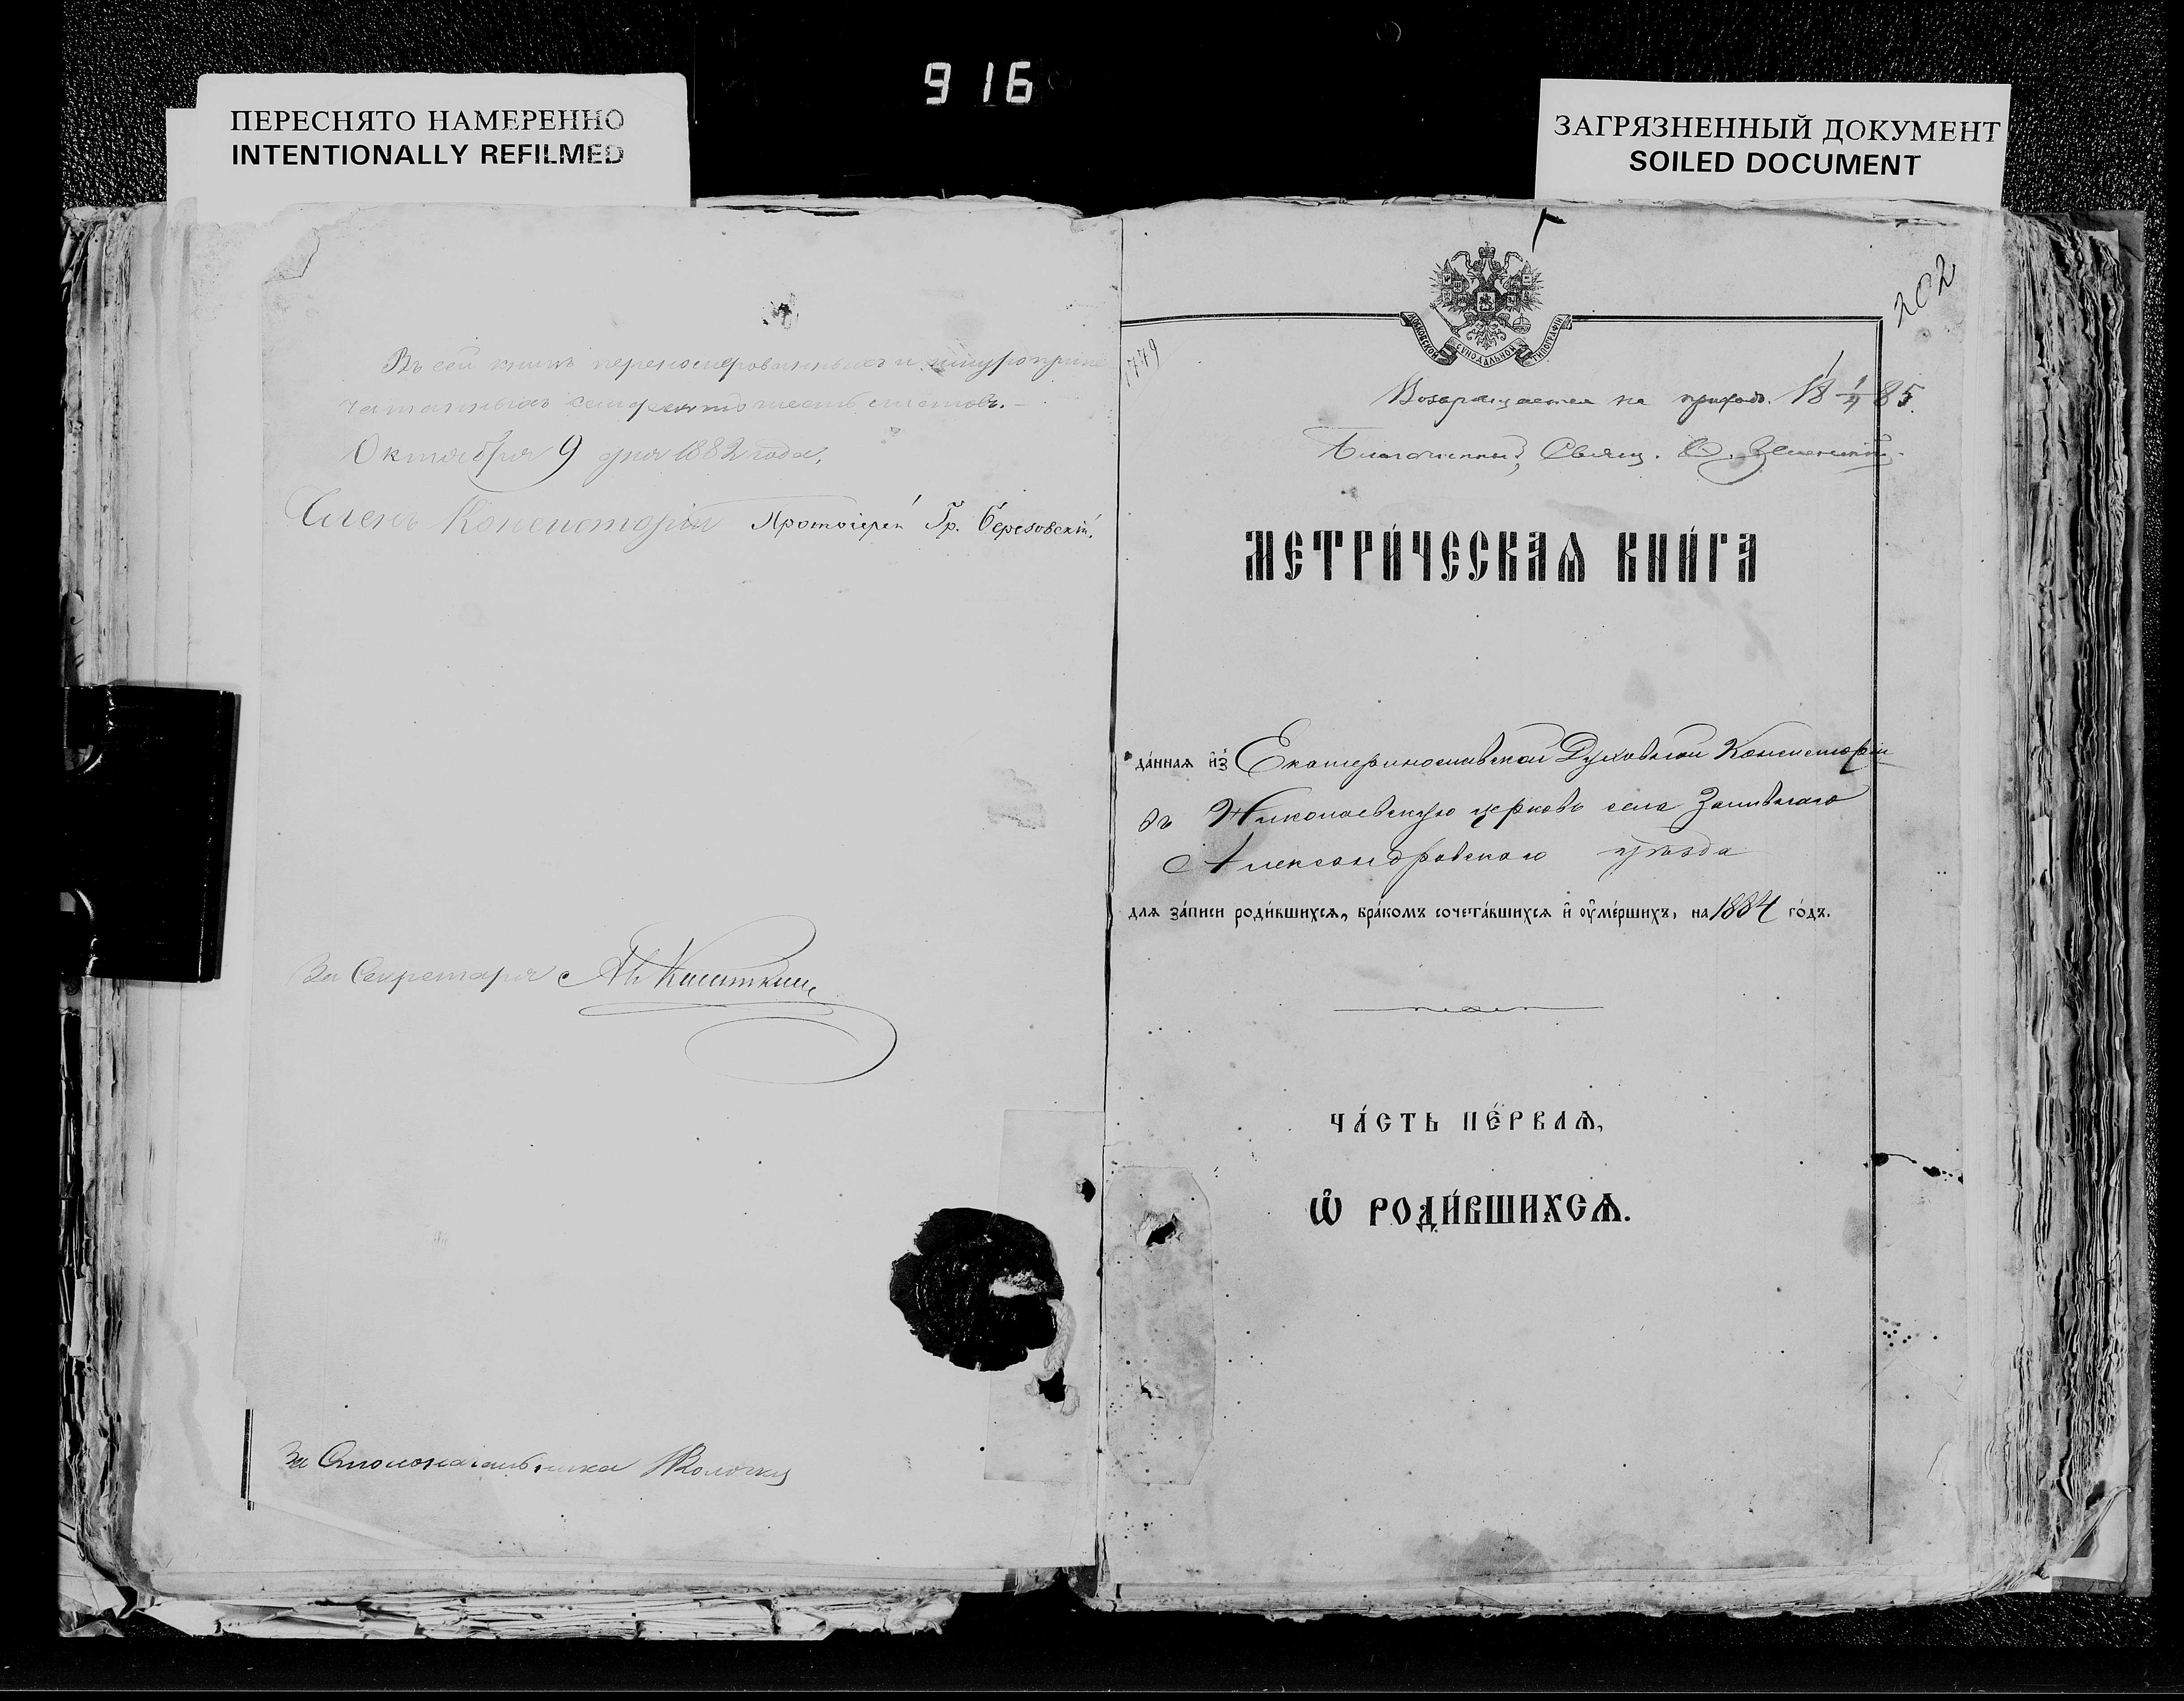 916
ПЕРЕСНЯТО НАМЕРЕННО
INTENTIONALLY REFILMED
ЗАГРЯЗНЕННЫЙ ДОКУМЕНТ
SOILED DOCUMENT
Въ сей книгѣ перенумерованныхъ и шнуропри
чатанныхъ семьдесятъ шесть листовъ.
Октября 9 дня 1882 года.
Членъ Консисторіи Протоіерей Гр. Березовскій.
За Секретаря
За Столоначальника
202
1779
МОСКОВСКОЙ СѴНОДАЛЬНОЙ ТИПОГРАФІИ
Возвращается на приходъ. 18 1/4 85.
Благочинный, Свящ.
МЕТРИ́ЧЕСКАѦ КНИ́ГА
да́нная и҆з̾ Екатеринославской Духовной Консисторіи
въ Николаевскую церковь села Заливнаго
Александровскаго уѣзда
для за́писи роди́вшихся, бра́комъ сочета́вшихся и҆ оу҆ме́ршихъ, на 1884 го́дъ.
ЧА́СТЬ ПЕ́РВАѦ,
Ѡ҆ РОДИ́ВШИХСѦ.